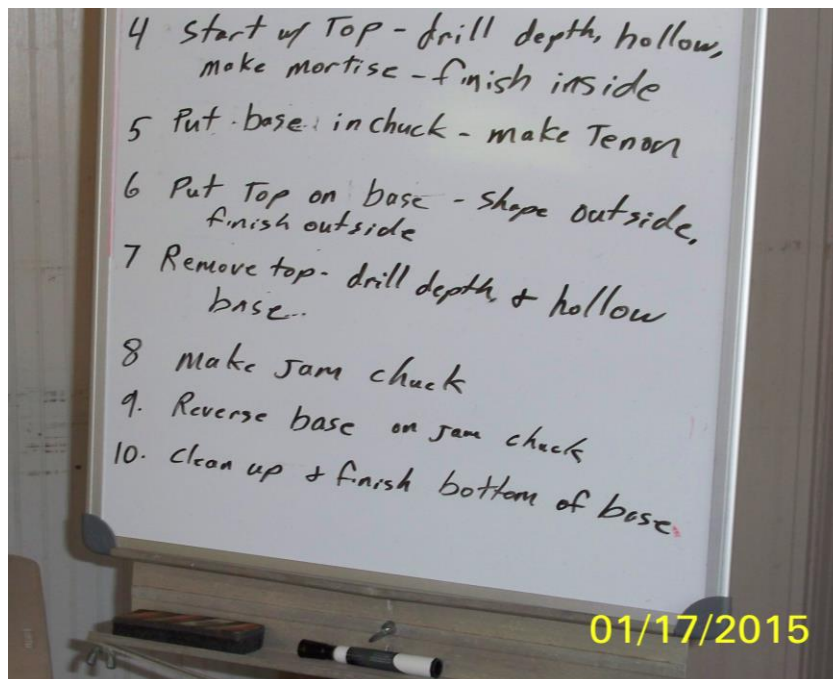 4 Start w/ Top - drill depth, hollow,
make mortise - finish inside
5 Put base in chuck - make Tenon
6 Put Top on base - shape outside,
finish outside
7 Remove top - drill depth, & hollow
base..
8 make Jam chuck
9. Reverse base on Jam chuck
10. clean up & finish bottom of base
01/17/2015